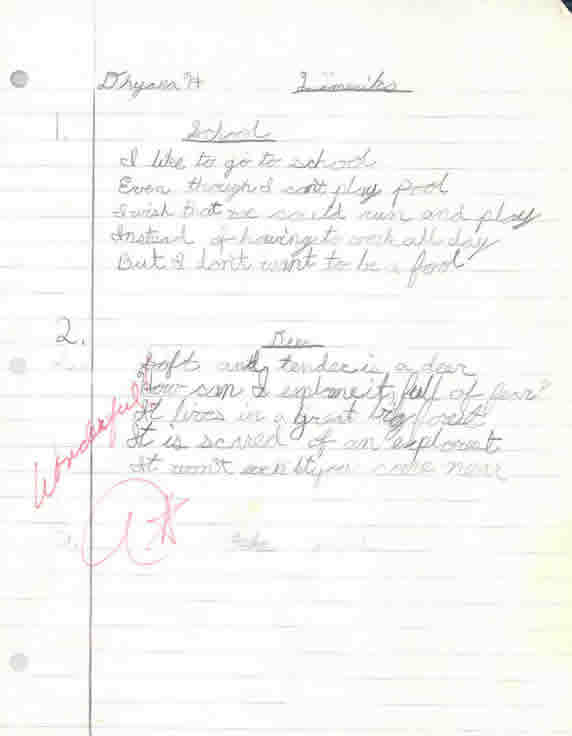 Dhyana H Limericks
1.
School
I like to go to school
Even though I can't play pool
I wish that we could run and play
Instead of having to work all day
But I don't want to be a fool
2.
Deer
Soft and tender is a deer
How can I explain it, full of fear?
It lives in a great big forest
It is scared of an explorest
It won't even let you come near
Wonderful!
A